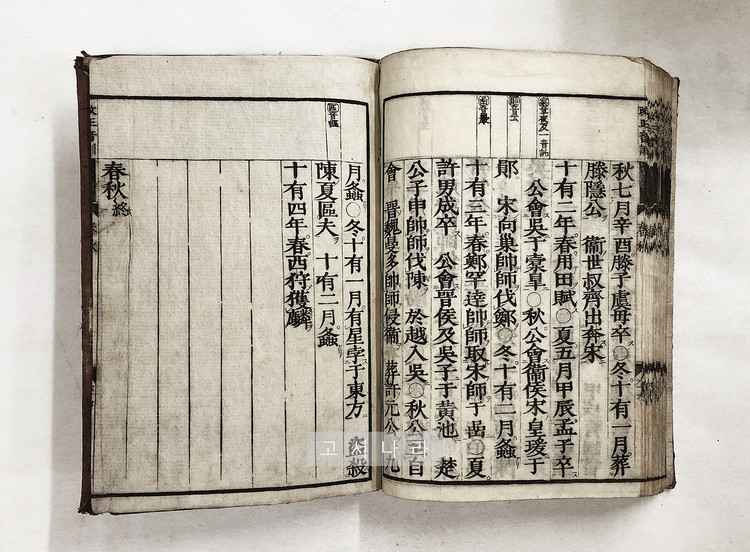 橐章夜及一音託
鄖音云
嵒音巖
秋七月辛酉滕子虞母卒〇冬十有一月葬
滕隱公 衞世叔齊出奔宋
十有二年春用田賦〇夏五月甲辰孟子卒
公會吳于橐皐〇秋公會衞侯宋皇瑗于
鄖 宋向巢帥師伐鄭〇冬十有二月螽
十有三年春鄭罕達帥師取宋師于嵒〇夏
許男成卒 公會晉侯及吳子于黃池 楚
公子申帥師伐陳 於越入吳〇秋公至自
會 晉魏曼多帥師侵衞 葬許元公 九
區音謳
月螽〇冬十有一月有星孛于東方 盜殺
陳夏區夫 十有二月螽
十有四年春西狩獲麟
春秋終
고서나라